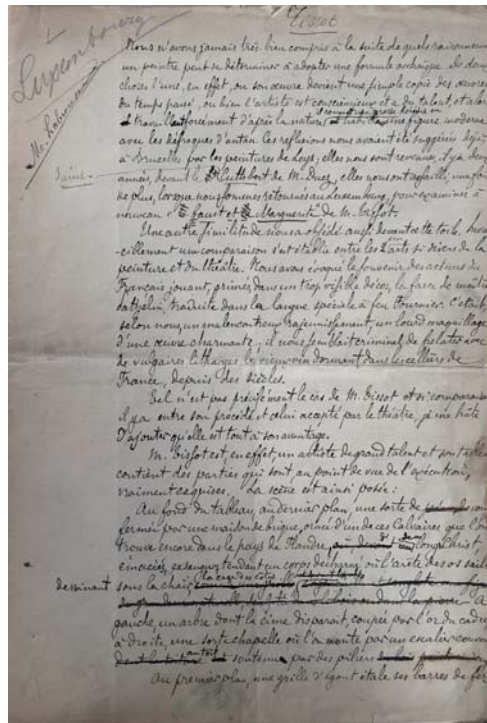 Tissot
Luxembourg
Me. 
Nous n'avons jamais très bien compris à la suite de quels raisonnements
un peintre peut se déterminer à adopter une formule archaïque. De deux
choses l'une, en effet, ou son œuvre devient une simple copie des œuvres
du temps passé, ou bien l'artiste est consciencieux et a du talent, et alors
il travaille forcément d'après la nature, une figure moderne
avec les défroques d'antan. Ces réflexions nous avaient été suggérées déjà
à Bruxelles par les peintures de Leys; elles nous sont revenues, il y a deux
Saint
années, devant le Cuthbert de M. Duez, elles nous ont assailli, une fois
de plus, lorsque nous sommes retournés au Luxembourg, pour examiner à
nouveau le Faust et Marguerite de M. Tissot.
Une autre similitude nous a obsédé aussi devant cette toile. Invo-
-ontairement une comparaison s'est établie entre les 2 arts si divers de la
peinture et du théâtre. Nous avons évoqué le souvenir des acteurs du
Français jouant, grimés, dans un trop visible décor, la farce de maistre
Pathelin, traduite dans la langue spéciale à feu Fournier. C'était,
selon nous, un malencontreux rajeunissement, un lourd maquillage
d'une œuvre charmante; il nous semblait criminel de frelater avec
de vulgaires litharges le vieux vin dormant dans les celliers de
France, depuis des siècles.
Tel n'est pas précisément le cas de M. Tissot et si comparaison
il y a entre son procédé et celui accepté par le théâtre, je me hâte
d'ajouter qu'elle est tout à son avantage.
M. Tissot est, en effet, un artiste de grand talent et son tableau
contient des parties qui sont, au point de vue de l'exécution,
vraiment exquises. La scène est ainsi posée:
Au fond du tableau, au dernier plan, une sorte de
fermée par une maison de brique, ornée d'un de ces calvaires que l'on
trouve encore dans le pays de Flandre, long Christ,
émacié, exsangue, tendant un corps décharné où l'arête des os saille
dessinant
sous la chair, la cage du corps
A
gauche, un arbre dont la cime disparait, coupée par l'or du cadre
à droite, une sorte chapelle où l'on monte par un escalier couvert
soutenu par des piliers
Au premier plan, une grille d'égout étale ses barres de fer